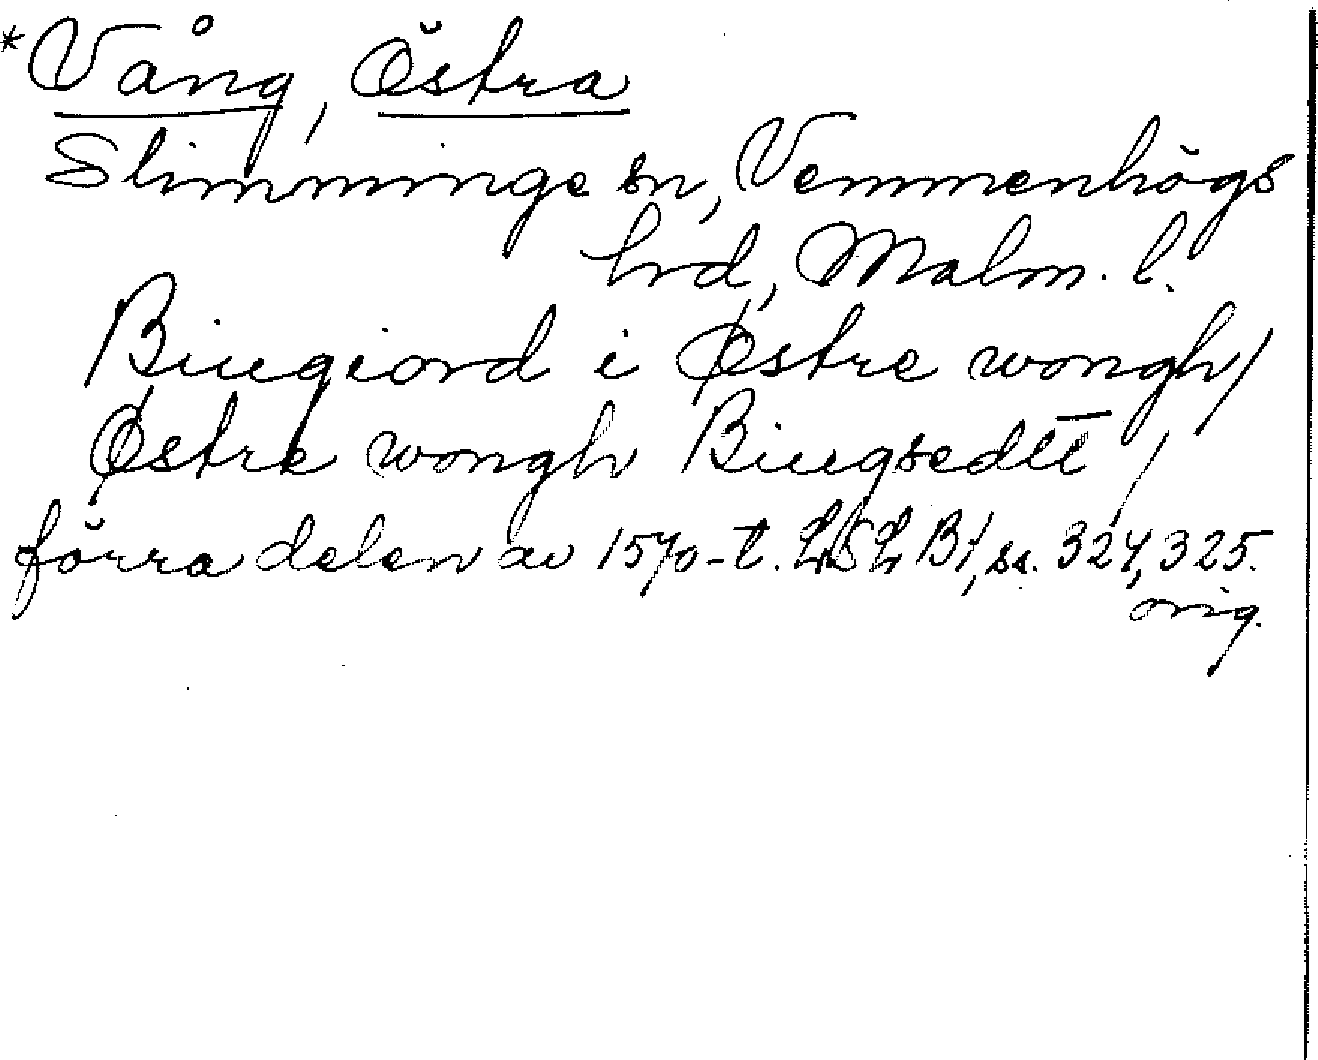 *Vång, Östra
Slimminge sn, Vemmenhögs
hrd, Malm. l.
Biugiord i Østre wongh/
Østre wongh Biugsedĕt /
förra delen av 1570-t. LSL B1, ss. 324, 325.
orig.